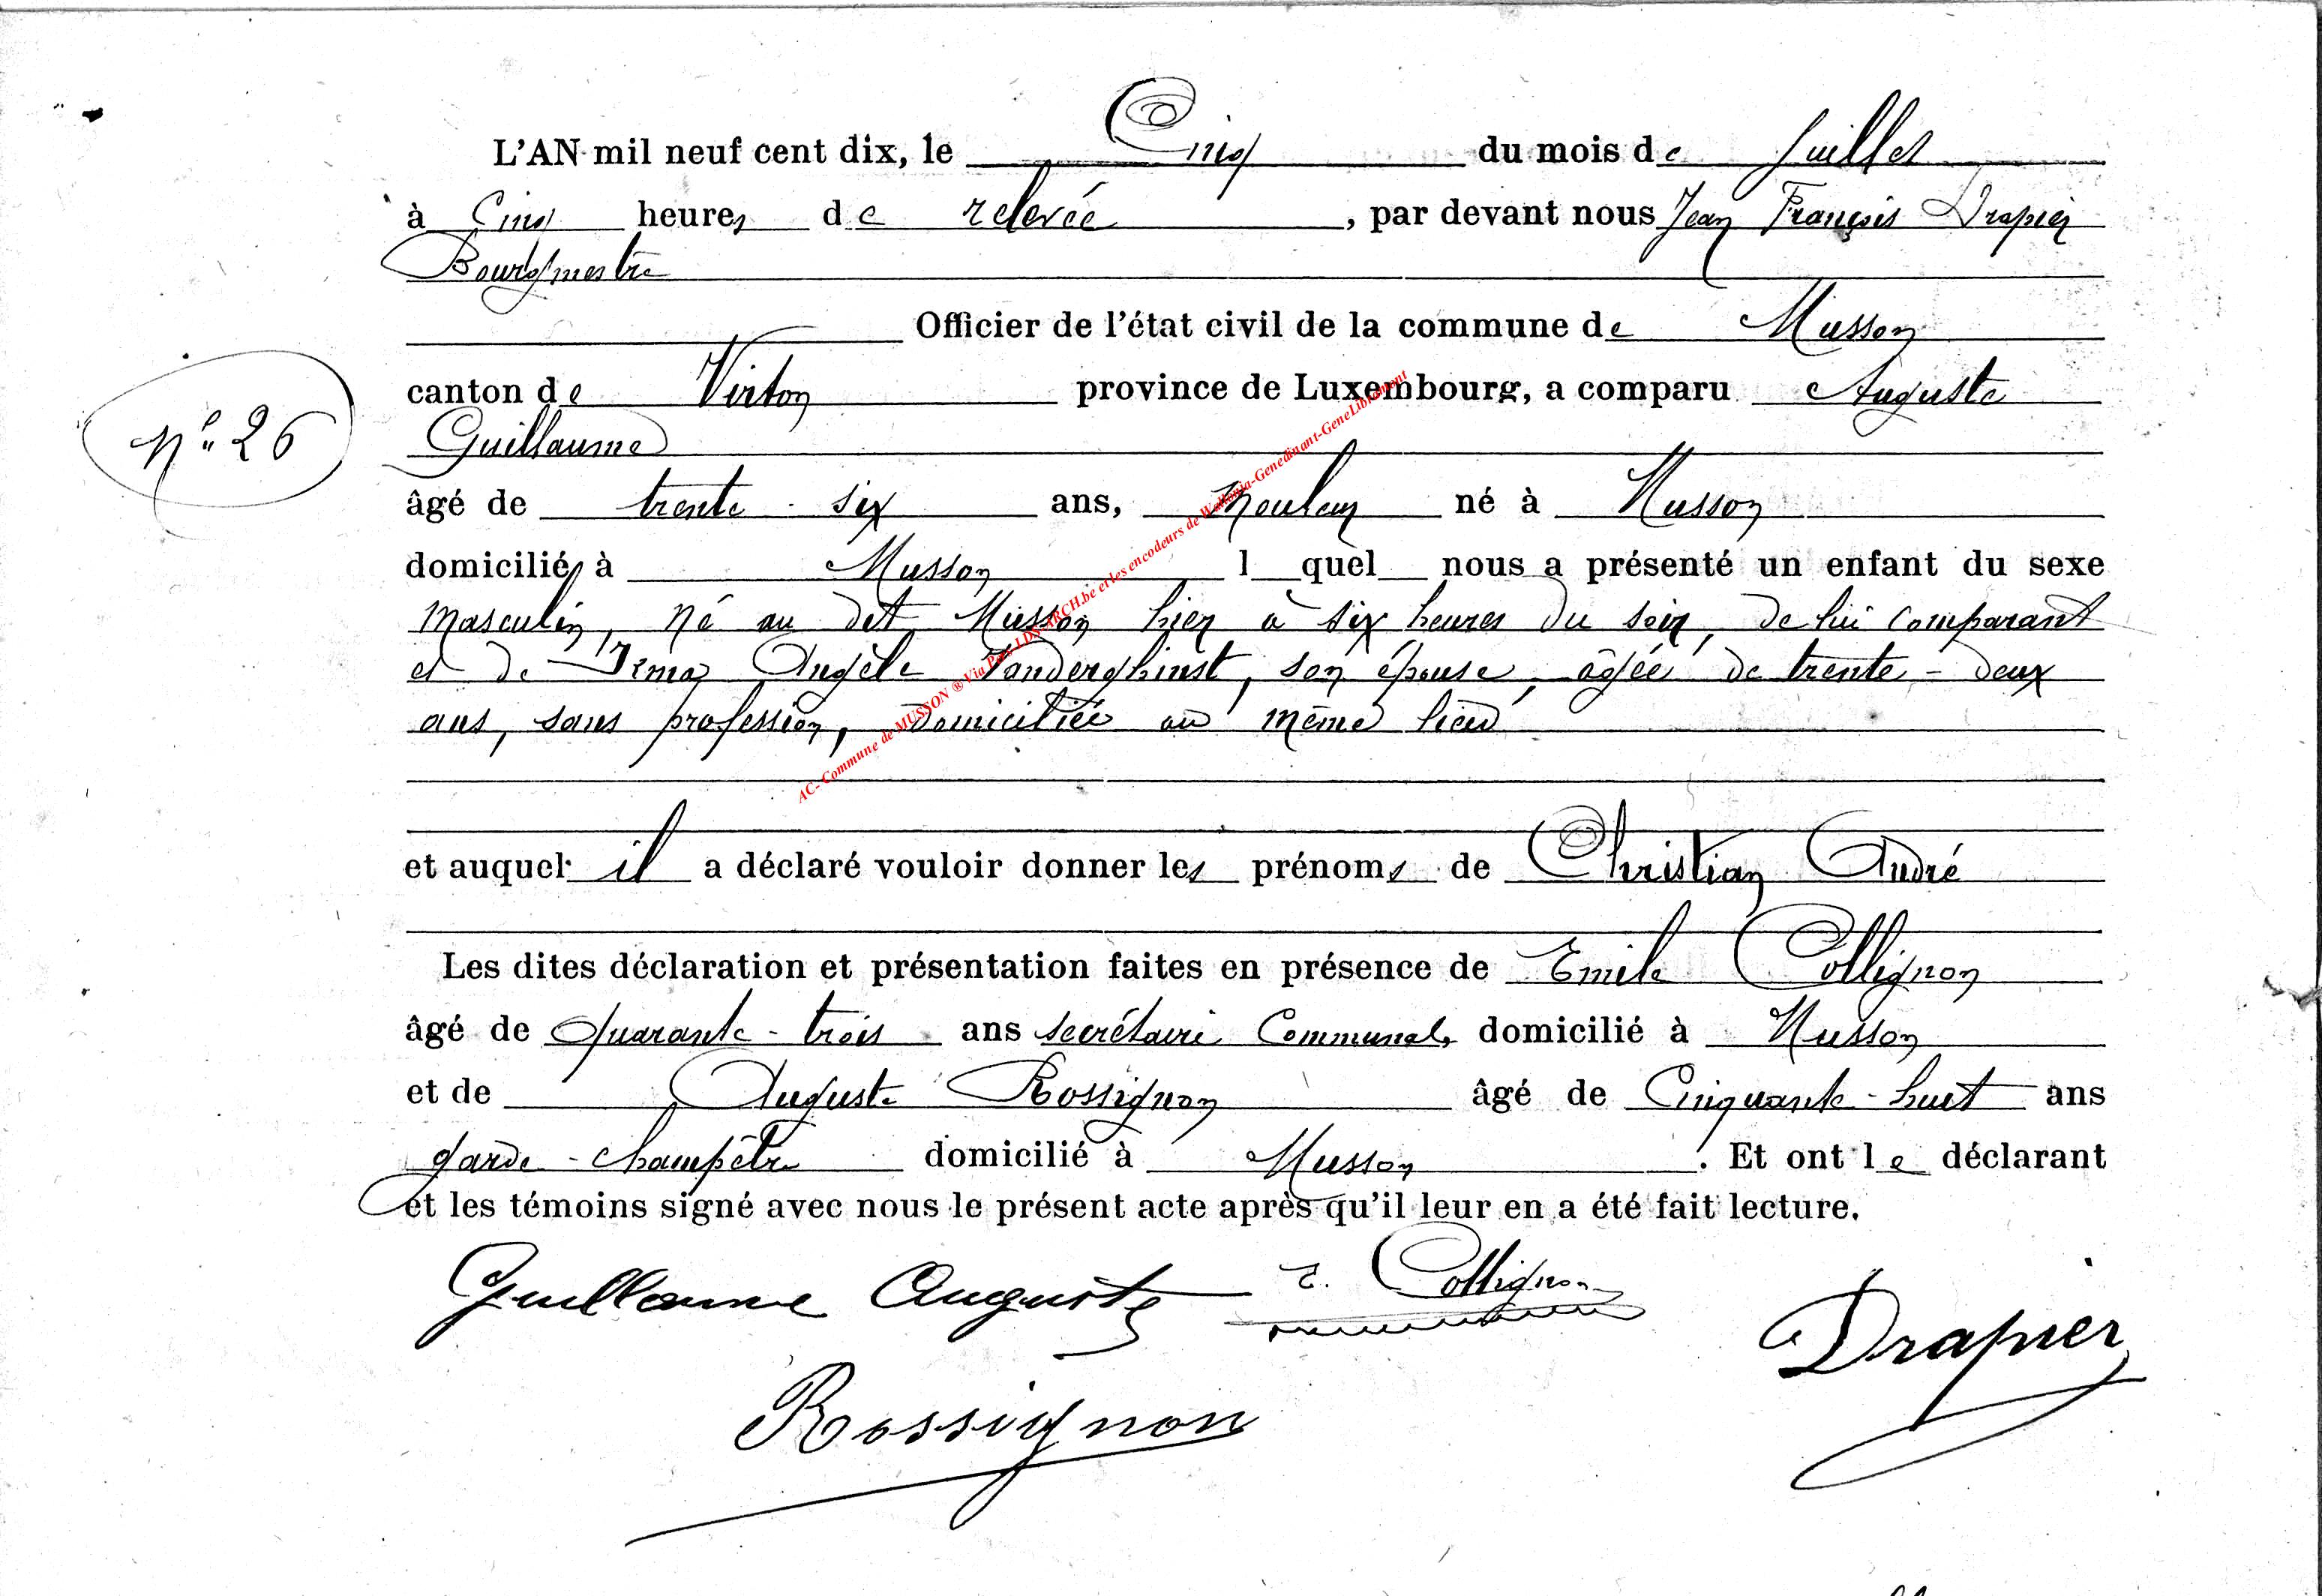 L'AN mil neuf cent dix, le Cinq du mois de Juillet
à Cinq heures de relevée, par devant nous Jean François Drapier
Bourgmestre
Officier de l'état civil de la commune de Musson
canton de Virton province de Luxembourg, a comparu Auguste
Guillaume
N° 26
âgé de trente-six ans, mouleur né à Musson
domicilié à Musson l quel nous a présenté un enfant du sexe
masculin, né au dit Musson hier à six heures du soir, de lui comparant
et de Irma Angèle Vanderghinst, son épouse, âgée de trente-deux
ans, sans profession, domiciliée au même lieu
AC- Commune de MUSSON ® Via Patr LDS-ARCH.be et les encodeurs de Wallonia-Genedinant-GeneLibramont
et auquel il a déclaré vouloir donner les prénoms de Christian André
Les dites déclaration et présentation faites en présence de Emile Collignon
âgé de quarante-trois ans secrétaire Communal, domicilié à Musson
et de Auguste Rossignon âgé de Cinquante-huit ans
garde-champêtre domicilié à Musson. Et ont le déclarant
et les témoins signé avec nous le présent acte après qu'il leur en a été fait lecture.
Guillaume Auguste E. Collignon
Drapier
Rossignon